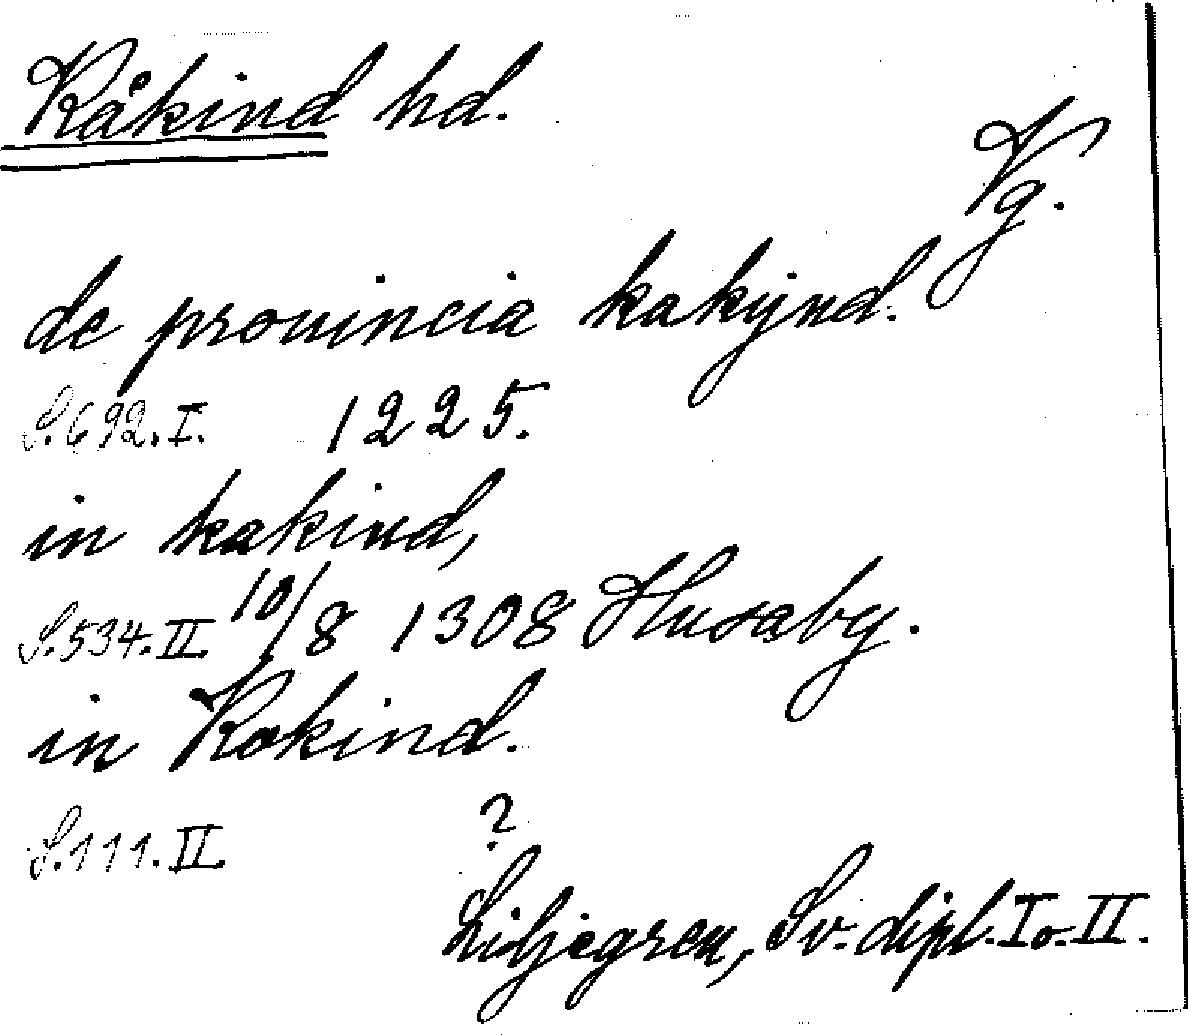 Kåkind hd.
Vg.
de prouincia kakijnd.
S.692.I. 1225.
in kakind,
S.534.II. 10/8 1308 Husaby.
in Kakind.
S.111.II. ?
Liljegren, Sv. dipl. I o. II.